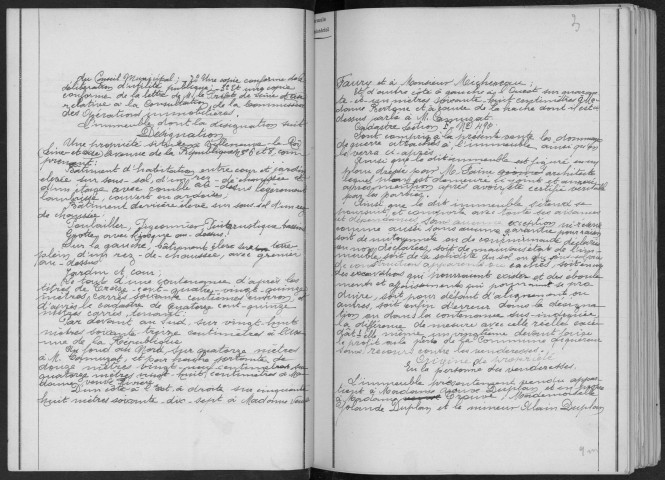 du Conseil Municipal ; - 7° Une copie conforme de la
délibération d'utilité publique ; - 8° Et une copie
conforme de la lettre de M. le Préfet de Seine et Oise
relative à la Consultation de la Commission
des Opérations immobilières.
L'immeuble dont la désignation suit
Désignation
Une propriété sise à Villeneuve le Roi
Seine et Oise, avenue de la République, 6 et 8, com-
prenant :
Bâtiment d'habitation entre cour et jardin
élevé sur sous-sol, d'un rez-de-chaussée et
d'un étage avec comble au-dessus légèrement
lambrissé, couvert en ardoises.
Bâtiment derrière élevé sur sous sol d'un rez
de chaussée.
Poulailler, Pigeonnier
Grotte, avec kiosque au-dessus
Sur la gauche, bâtiment élevé sur terre
plein d'un rez-de-chaussée, avec grenier
au-dessus.
Jardin et cour ;
Le tout d'une contenance d'après les
titres de treize cent quatre-vingt-quatorze
mètres carrés soixante centièmes environ et
d'après le cadastre de quatorze cent quinze
mètres carrés tenant :
Par devant au Sud, sur vingt huit
mètres soixante treize centimètres à l'Ave-
nue de la République
Au fond au Nord sur quatorze mètres
à M. et par hache sortante de
douze mètres vingt neuf centimètres sur
quatorze mètres vingt huit centimètres à Ma-
dame veuve
D'un côté à l'Est, à droite sur cinquante
huit mètres soixante-dix-sept à Madame Veuve
3
Faury et à Monsieur
Et d'autre côté à gauche à l'Ouest sur quarante
et un mètres soixante huit centimètres à Ma-
dame et à cause de la hache dont il est ci-
dessus parlé à M.
Cadastré Section E N° 1496.
Sont compris à la présente vente les dommages
de guerre attachés à l'immeuble, ainsi qu'on
le verra ci-après.
Ainsi que ledit immeuble est figuré en un
plan dressé par M. architecte
lequel plan est demeuré ci-joint et annexé
après mention après avoir été certifié véritable
par les parties.
Ainsi que le dit immeuble s'étend se
poursuit et comporte avec toutes ses aisances
et dépendances sans aucune exception ni réserve
comme aussi sans aucune garantie pour raison
soit de mitoyenneté ou de communauté de clôture
ou non clôtures, soit de mauvais état de l'im-
meuble, soit de la solidité du sol ou du sous-sol ou
de vices même apparents ou cachés, soit enfin
des excavations qui pourraient exister et des éboule-
ments et affouissements qui pourraient se pro-
duire, soit pour défaut d'alignement ou
autres, soit enfin d'erreur dans la désigna-
tion ou dans la contenance sus-indiquée,
la différence de mesure avec celle réelle excé-
dât-elle même un vingtième devant faire
le profit ou la perte de la Commune acquéreur
sans recours contre les venderesses.
Origine de Propriété
En la personne des venderesses.
L'immeuble présentement vendu appar-
tient à Madame veuve Duplan et en propre
à Madame Trouvé, Mademoiselle
Yolande Duplan et le mineur Alain Duplan